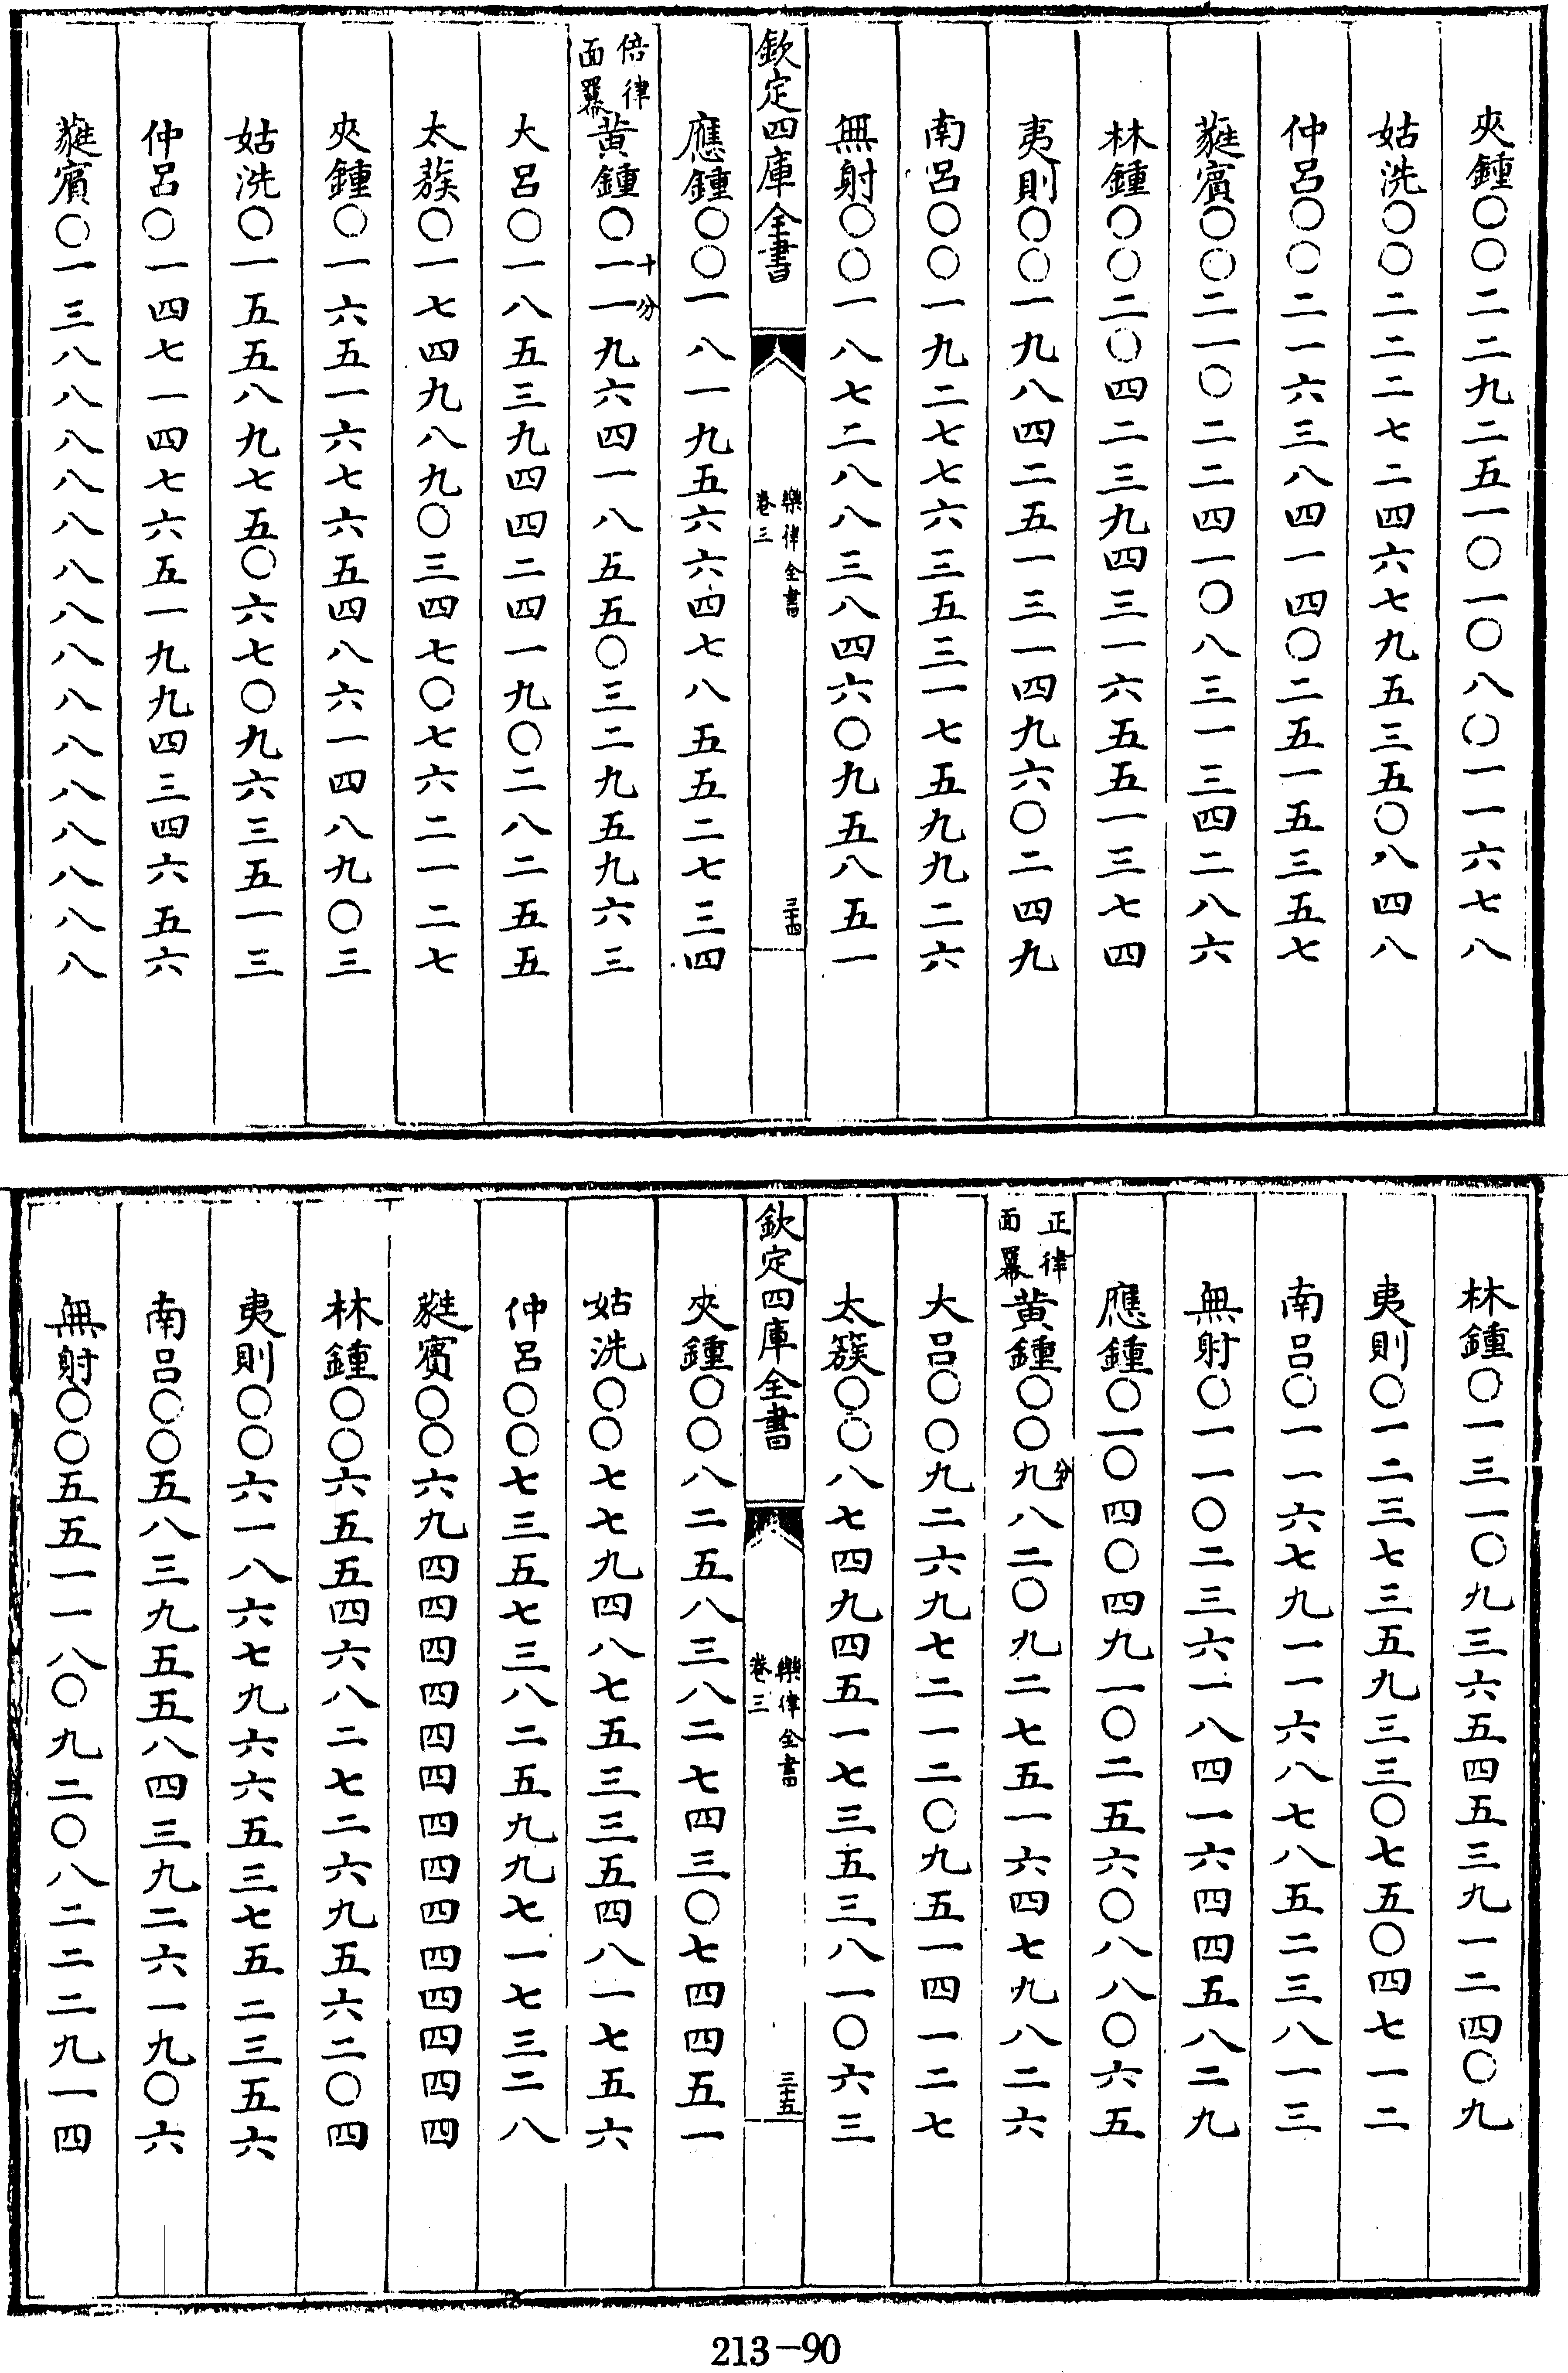 夾鍾〇〇二二九二五一〇一〇八〇一一六七八
姑洗〇〇二二二七二四六七九五三五〇八四八
仲呂〇〇二一六三八四一四〇二五一五三五七
蕤賓〇〇二一〇二二四一〇八三一三四二八六
林鍾〇〇二〇四二三九四三一六五五一三七四
夷則〇〇一九八四二五一三一四九六〇二四九
南呂〇〇一九二七七六三五三一七五九九二六
無射〇〇一八七二八八三八四六〇九五八五一
欽定四庫全書 樂律全書 卷三 三十四
應鍾〇〇一八一九五六六四七八五五二七三四
倍律面冪黄鍾〇一十一分九六四一八五五〇三二九五九六三
大呂〇一八五三九四四二四一九〇二八二五五
太蔟〇一七四九八九〇三四七〇七六二一二七
夾鍾〇一六五一六七六五四八六一四八九〇三
姑洗〇一五五八九七五〇六七〇九六三五一三
仲呂〇一四七一四七六五一九九四三四六五六
蕤賓〇一三八八八八八八八八八八八八八八八
林鍾〇一三一〇九三六五四五三九一二四〇九
夷則〇一二三七三五九三三〇七五〇四七一二
南呂〇一一六七九一一六八七八五二三八一三
無射〇一一〇二三六一八四一六四四五八二九
應鍾〇一〇四〇四九一〇二五六〇八八〇六五
正律面冪黄鍾〇〇九分八二〇九二七五一六四七九八二六
大呂〇〇九二六九七二一二〇九五一四一二七
太簇〇〇八七四九四五一七三五三八一〇六三
欽定四庫全書 樂律全書 卷三 三十五
夾鍾〇〇八二五八三八二七四三〇七四四五一
姑洗〇〇七七九四八七五三三五四八一七五六
仲呂〇〇七三五七三八二五九九七一七三二八
蕤賓〇〇六九四四四四四四四四四四四四四四
林鍾〇〇六五五四六八二七二六九五六二〇四
夷則〇〇六一八六七九六六五三七五二三五六
南呂〇〇五八三九五五八四三九二六一九〇六
無射〇〇五五一一八〇九二〇八二二二九一四
213-90